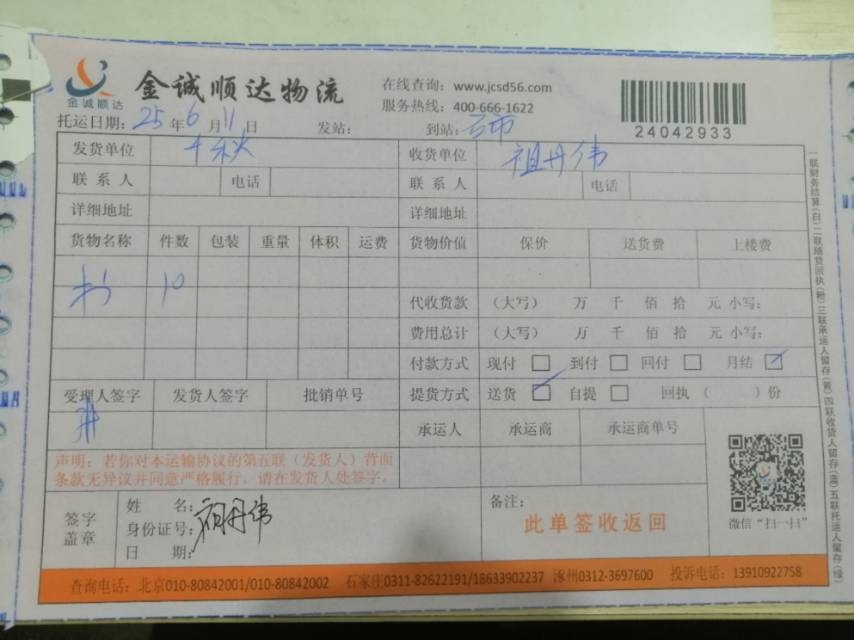 金诚顺达
金诚顺达物流
在线查询：www.jcsd56.com
服务热线：400-666-1622
24042933
托运日期：25年6月11日 发站： 到站：
发货单位 千秋 收货单位 祖丹伟
联系人 电话 联系人 电话
详细地址 详细地址
货物名称 件数 包装 重量 体积 运费 货物价值 保价 送货费 上楼费
书 10
代收货款 （大写） 万 千 佰 拾 元 小写：
费用总计 （大写） 万 千 佰 拾 元 小写：
付款方式 现付 到付 回付 月结
受理人签字 发货人签字 批销单号 提货方式 送货 自提 回执（ ）份
承运人 承运商 承运商单号
声明：若你对本运输协议的第五联（发货人）背面
条款无异议并同意严格履行，请在发货人处签字。
签字
盖章
姓 名：祖丹伟
身份证号：
日 期：
备注：
此单签收返回
微信“扫一扫”
一联财务结算(白)二联随货回执(粉)三联承运人留存(黄)四联收货人留存(蓝)五联托运人留存(绿)
查询电话：北京010-80842001/010-80842002 石家庄0311-82622191/18633902237 涿州0312-3697600 投诉电话：13910922758